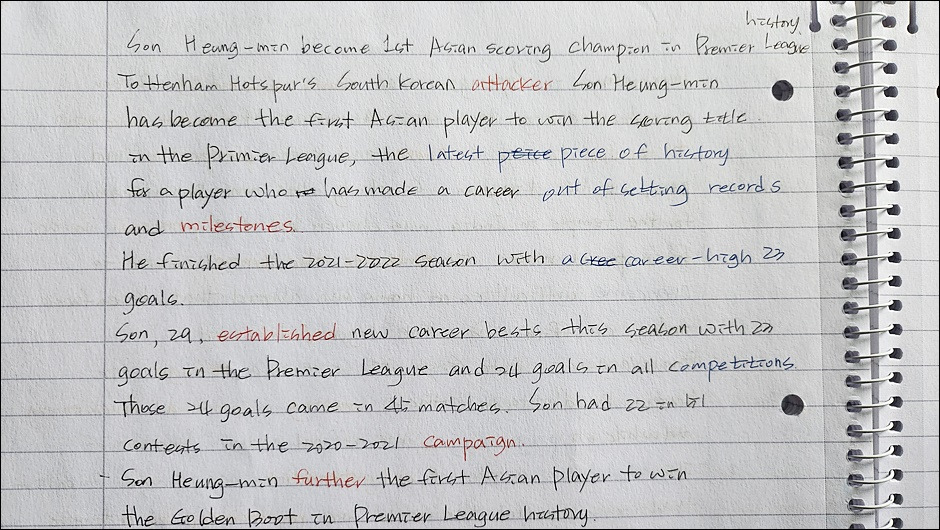 history
Son Heung-min become 1st Asian scoring champion in Premier League
Tottenham Hotspur's South Korean attacker Son Heung-min
has become the first Asian player to win the scoring title
in the Primier League, the latest peice piece of history
for a player who has made a career out of setting records
and milestones.
He finished the 2021-2022 season with a career-high 23
goals.
Son, 29, established new career bests this season with 23
goals in the Premier League and 24 goals in all competitions.
Those 24 goals came in 45 matches. Son had 22 in 51
contests in the 2020-2021 campaign.
- Son Heung-min further the first Asian player to win
the Golden Boot in Premier League history.